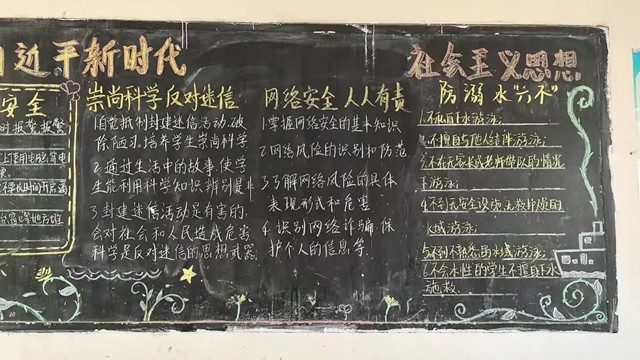 习近平新时代
社会主义思想
安全
时报警报警
崇尚科学反对迷信
1.自觉抵制封建迷信活动,破
除陋习,培养学生崇尚科学
2.通过生活中的故事,使学
生能利用科学知识辨别是非
3.封建迷信活动是有害的,
会对社会和人民造成危害
科学是反对迷信的思想武器.
网络安全人人有责
1.掌握网络安全的基本知识
2.网络风险的识别和防范
3.了解网络风险的具体
表现形式和危害
4.识别网络诈骗,保
护个人的信息等.
防溺水"六不"
1.不私自下水游泳;
2.不擅自与他人结伴游泳;
3.不在无家长或老师带队的情况
下游泳;
4.不到无安全设施,无救护员的
水域游泳;
5.不到不熟悉的水域游泳;
6.不会水性的学生不擅自下水
施救.